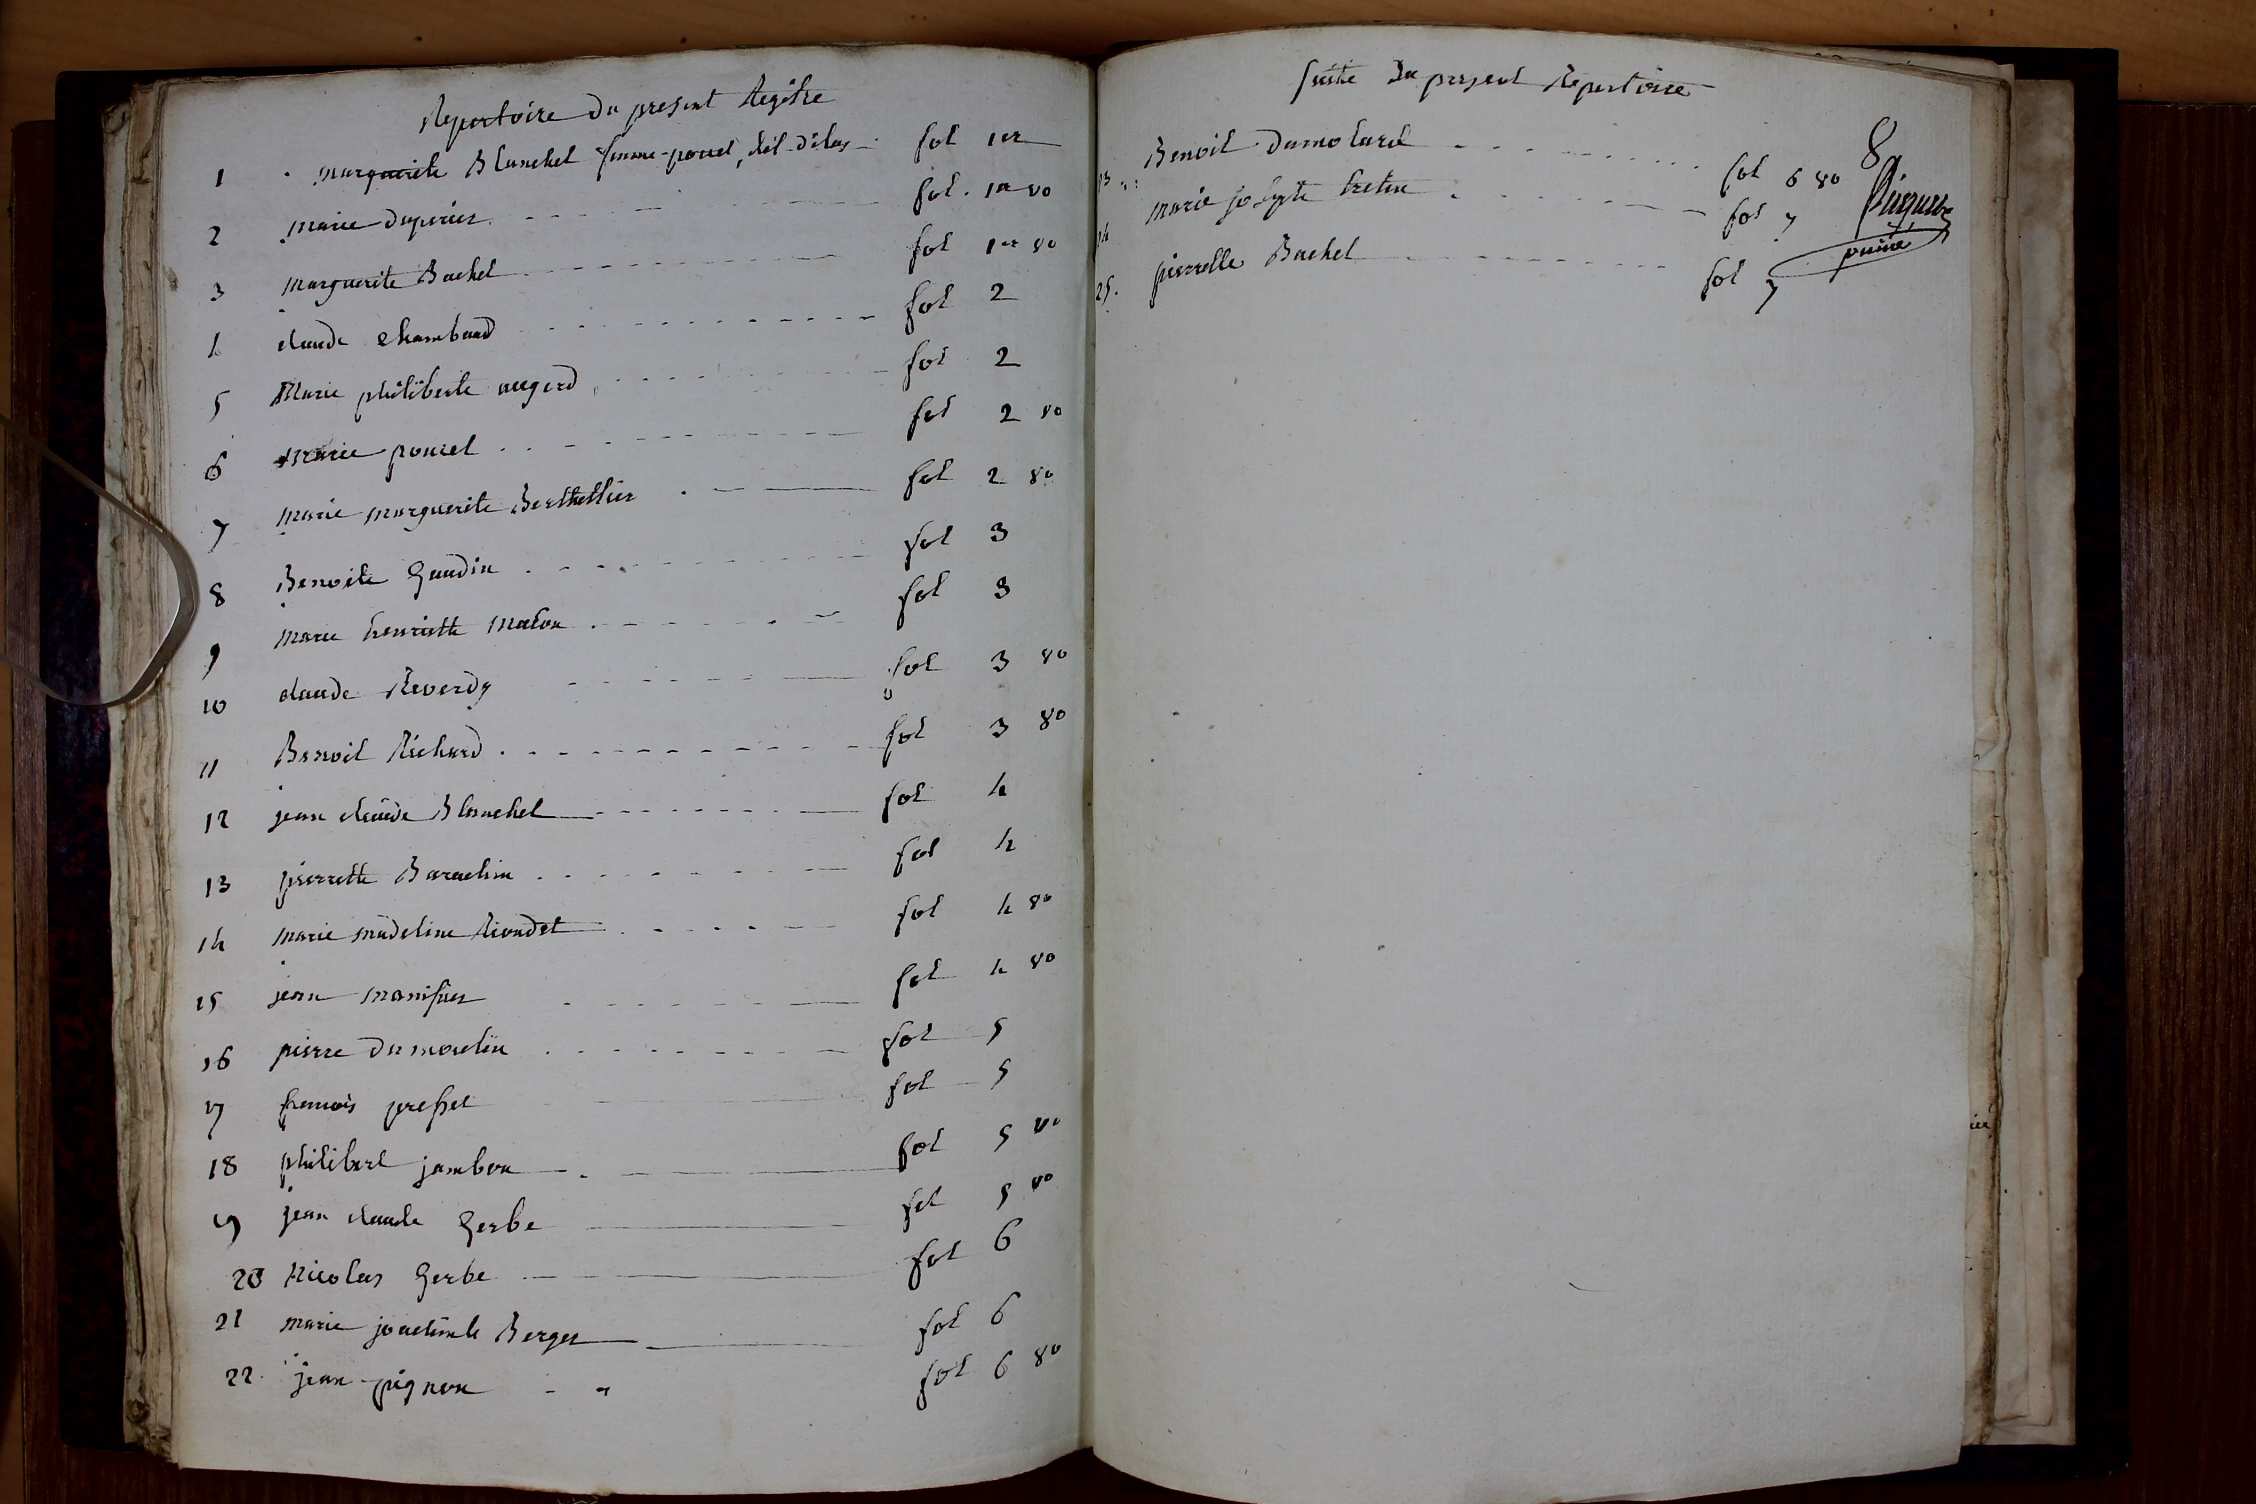 Repertoire du present Regitre
1 Marguerite Blanchet femme poncet, fol 1er
2 Marie duperier fol 1er vo
3 Marguerite Bachet fol 1er vo
4 claude chambard fol 2
5 Marie philiberte augerd fol 2
6 Marie poncet fol 2 vo
7 Marie marguerite Berthellier fol 2 vo
8 Benoite Gaudin fol 3
9 Marie henriette fol 3
10 claude Reverdy fol 3 vo
11 Benoit Richard fol 3 vo
12 jean claude Blanchet fol 4
13 pierrette fol 4
14 marie madeline Rioudet fol 4 vo
15 jean manifier fol 4 vo
16 pierre dumoulin fol 5
17 francois fol 5
18 philibert jambon fol 5 vo
19 jean claude Gerbe fol 5 vo
20 Nicolas Gerbe fol 6
21 marie Berger fol 6
22 jean pignon fol 6 vo
Suite du present Repertoire
8
23 Benoit dumolard fol 6 vo
24 marie josepte fol 7
25. pierrette Bachet fol 7